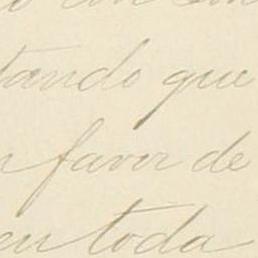 o con
tando que
favor de
en toda